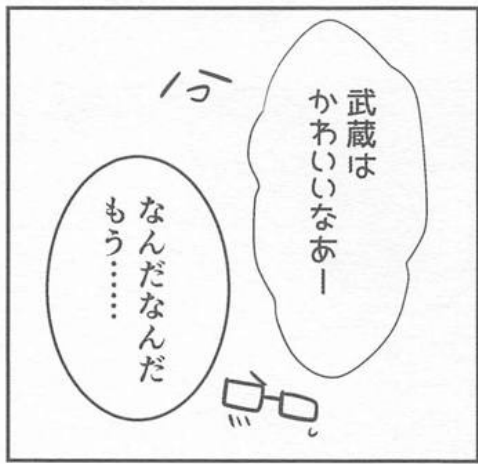 武蔵は
かわいいなあー
なんだなんだ
もう……